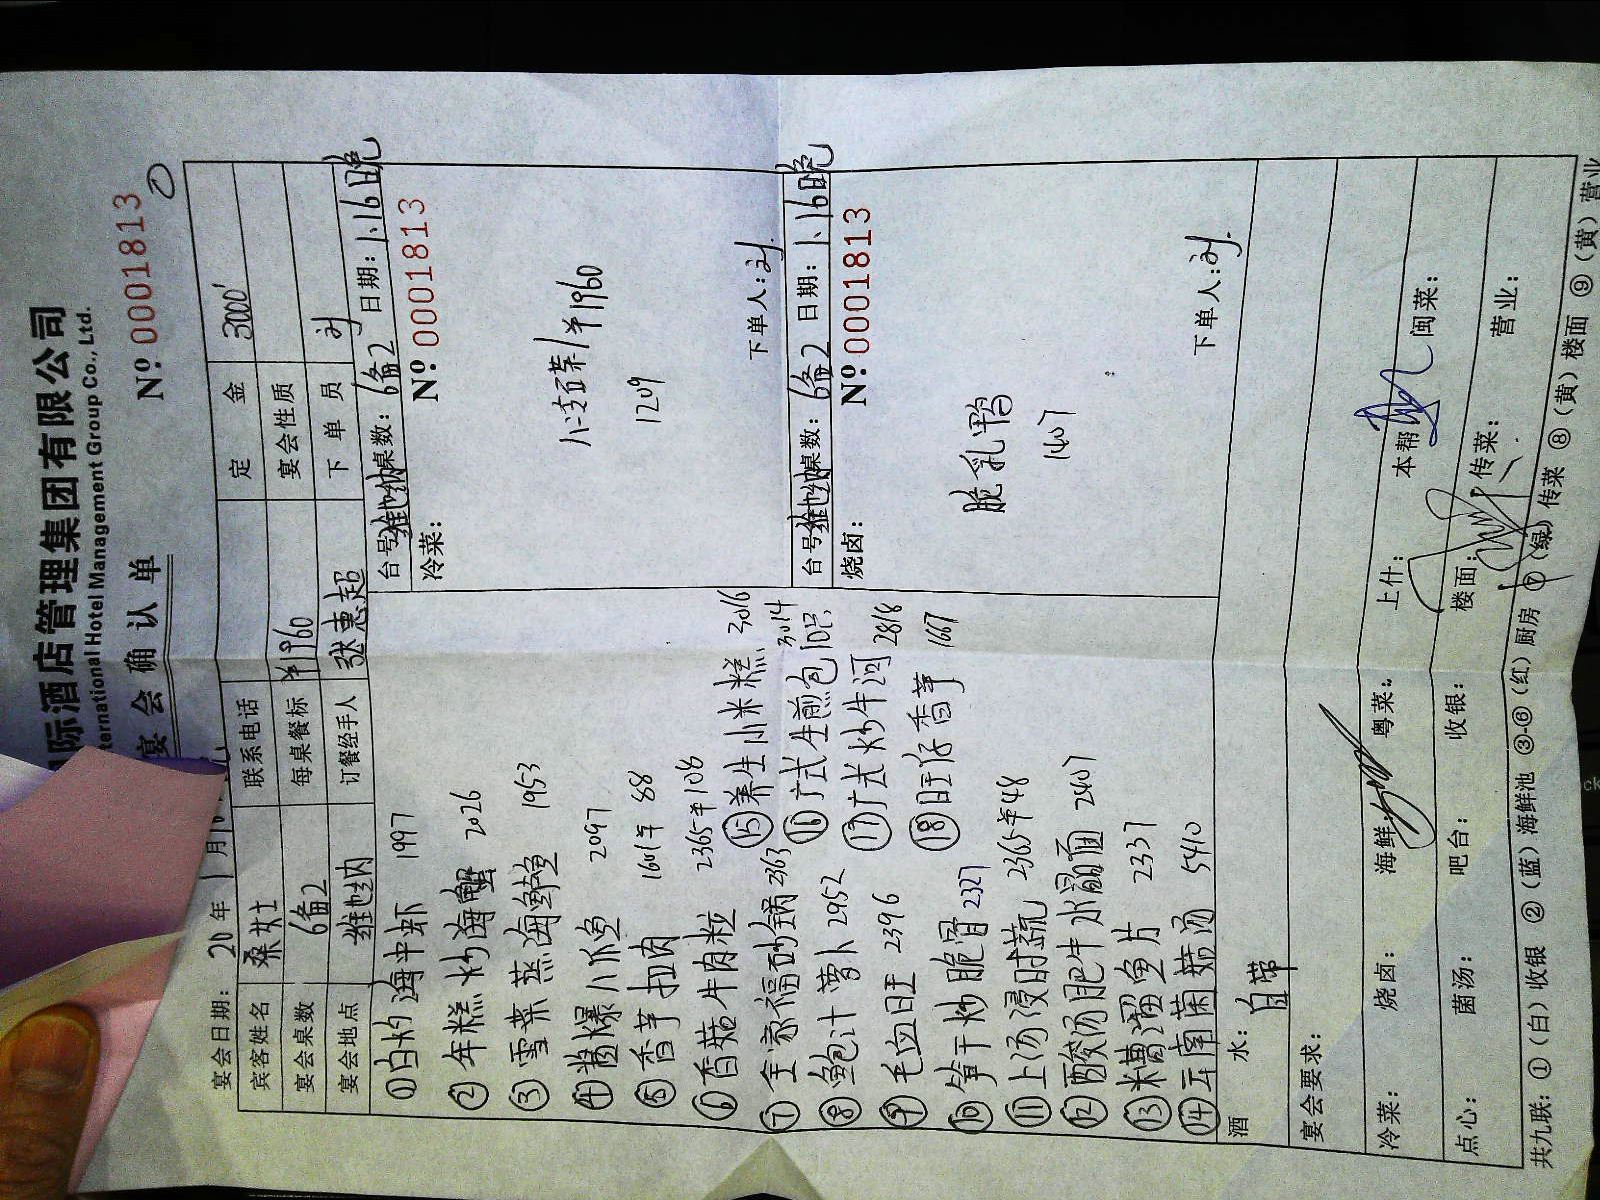 际酒店管理集团有限公司
ternational Hotel Management Group Co., Ltd.
宴会确认单
Nº 0001813
宴会日期: 20 年 1 月
定金 3000
宾客姓名 桑女士 联系电话 宴会性质
宴会桌数 6备2 每桌餐标 ¥1960 下单员 刘
宴会地点 维也纳 订餐经手人 张惠超
台号 维也纳 桌数: 6备2 日期: 1.16晚
冷菜: Nº: 0001813
八语菜/¥1960
1209
下单人: 刘
台号 维也纳 桌数: 6备2 日期: 1.16晚
烧卤: Nº: 0001813
脆乳鸭
1407
下单人: 刘
①白灼海中虾 1997
②年糕炒海蟹 2026
③雪菜蒸海鲈 1953
④酱爆八爪鱼 2097
⑤香芋扣肉 1601 ¥88
⑥香菇牛肉粒 2365 ¥108
⑦全家福砂锅 2363
⑧鲍汁萝卜 2952
⑨毛血旺 2396
⑩笋干炒脆骨 2327
⑪上汤浸时蔬 2365 ¥48
⑫酸汤肥牛水晶面 2407
⑬糟溜鱼片 2337
⑭云南菌菇汤 5410
⑮养生小米糕 3016
⑯广式生煎包 10只 3014
⑰广式炒牛河 2818
⑱旺仔香芋 1667
酒水: 自带
宴会要求:
冷菜: 烧卤: 海鲜: 粤菜: 上什: 本帮: 闽菜:
点心: 菌汤: 吧台: 收银: 楼面: 传菜: 营业:
共九联: ①(白)收银 ②(蓝)海鲜池 ③-⑥(红)厨房 ⑦(绿)传菜 ⑧(黄)楼面 ⑨(黄)营业